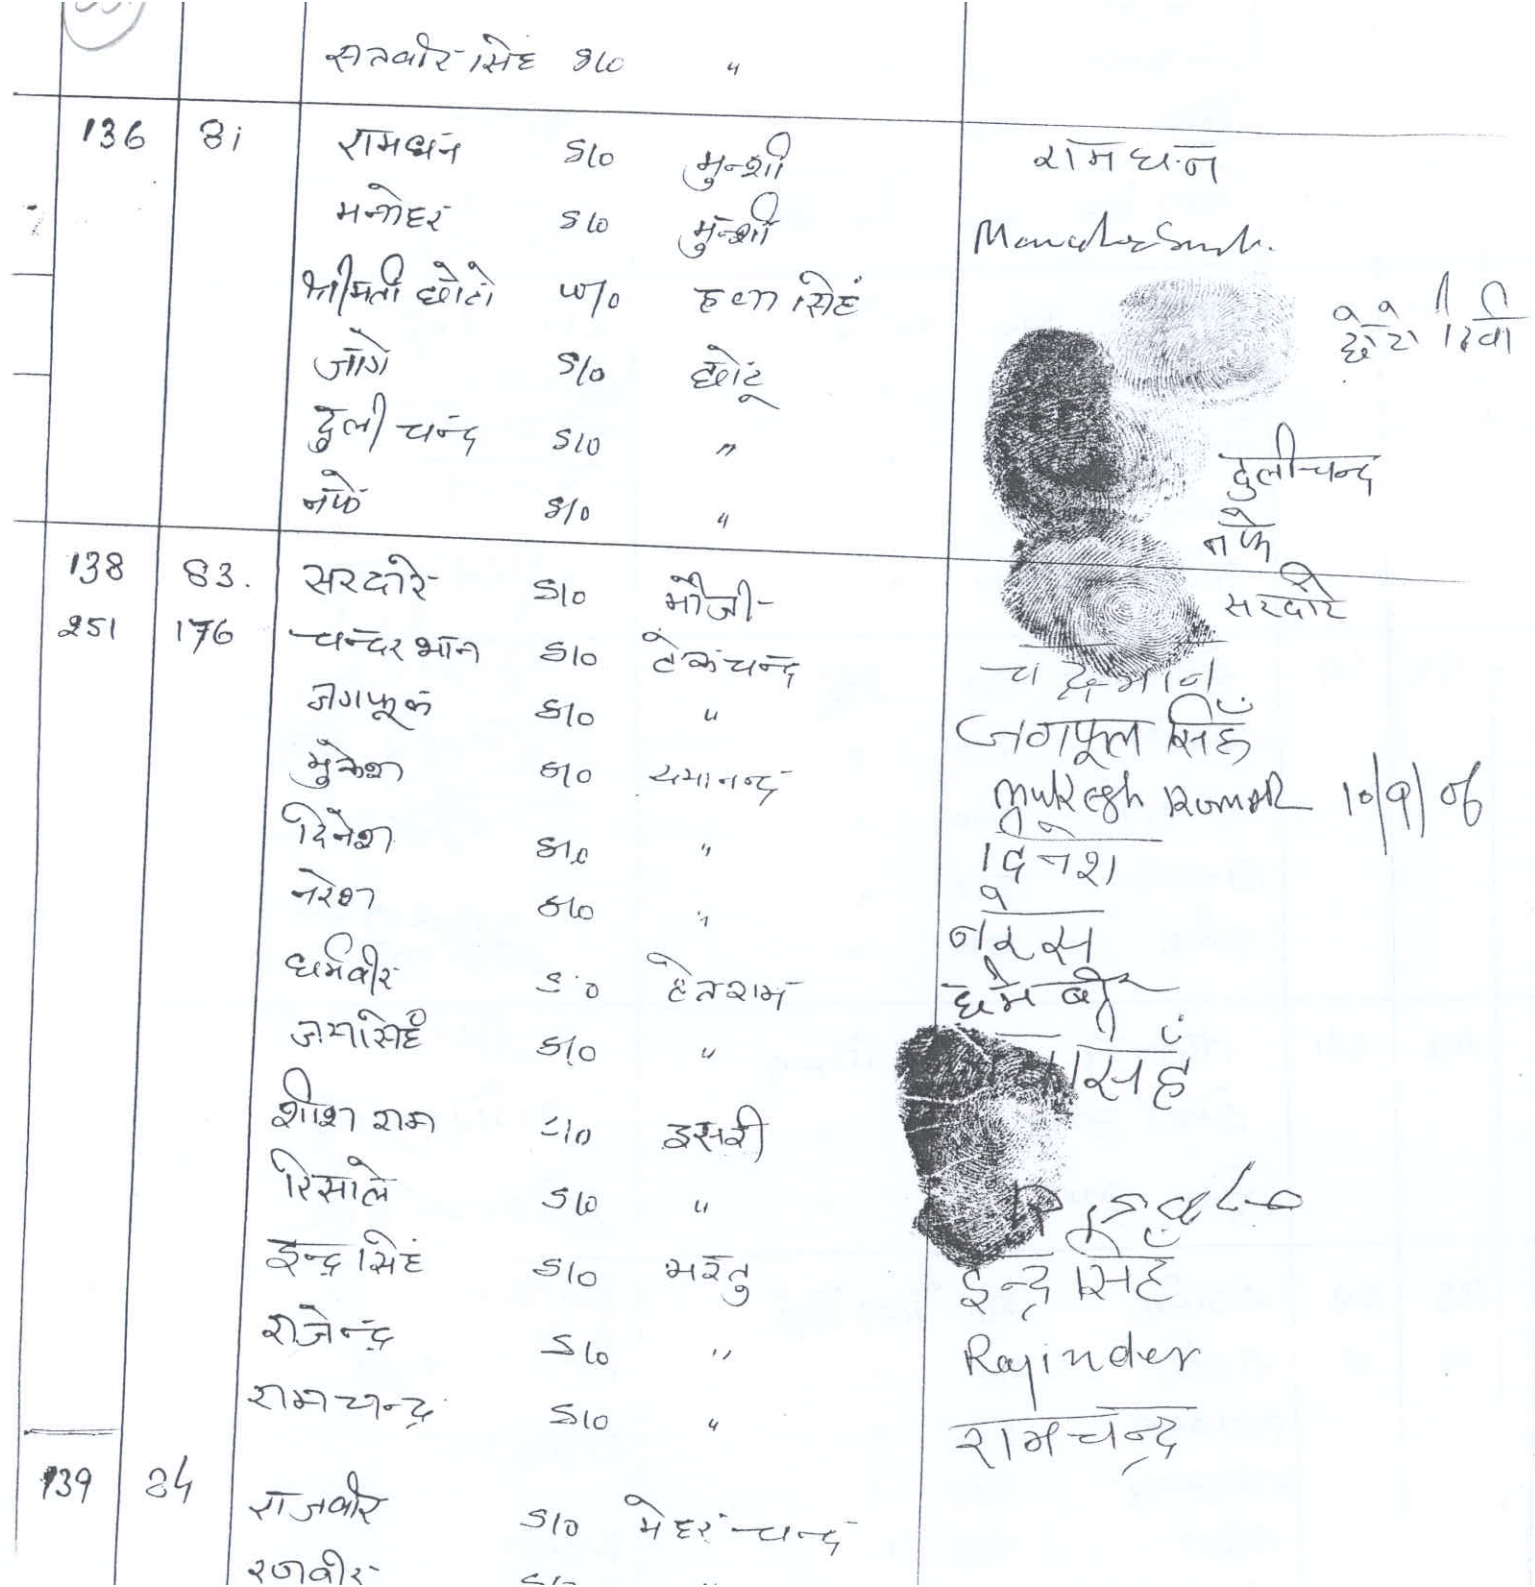 सतवीर सिंह S/o "
136 81 रामधन S/o मुन्शी रामधन
मनोहर S/o मुन्शी
श्रीमती छोटो W/o सिंह छोटो देवी
जोगे S/o छोटू
दुली चन्द S/o " दुलीचन्द
नफे S/o " नफे
138 83. सरदारे S/o मौजी सरदारे
251 176 चन्दर भान S/o टेकचन्द चन्द्रभान
जगफूल S/o " जगफूल सिंह
मुकेश S/o Mukesh Kumar 10/9/06
दिनेश S/o " दिनेश
नरेश S/o " नरेस
धर्मवीर S/o हेतराम धर्मबीर
S/o " सिंह
शीशराम S/o इसरी
रिसाले S/o "
इन्द्र सिंह S/o भरतु इन्द्र सिंह
राजेन्द्र S/o " Rajinder
रामचन्द्र S/o " रामचन्द्र
139 84 राजवीर S/o मेहर चन्द
रणवीर S/o "